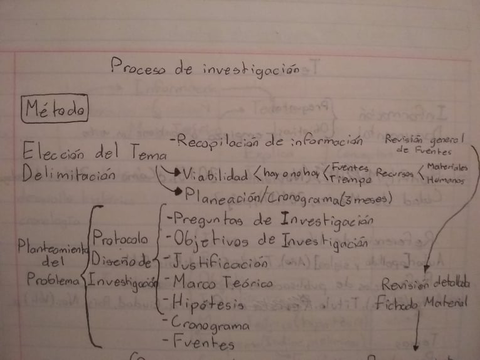 Proceso de investigación
Método
-Recopilación de información
Revisión general
de Fuentes
Elección del Tema
Delimitación
Viabilidad < hay o no hay < Fuentes Tiempo Recursos < Materiales Humanos
Planeación/Cronograma (5 meses)
Planteamiento
del
Problema
Protocolo
Diseño de
Investigación
-Preguntas de Investigación
-Objetivos de Investigación
-Justificación
-Marco Teórico
-Hipótesis
-Cronograma
-Fuentes
Revisión detallada
Fichado Material